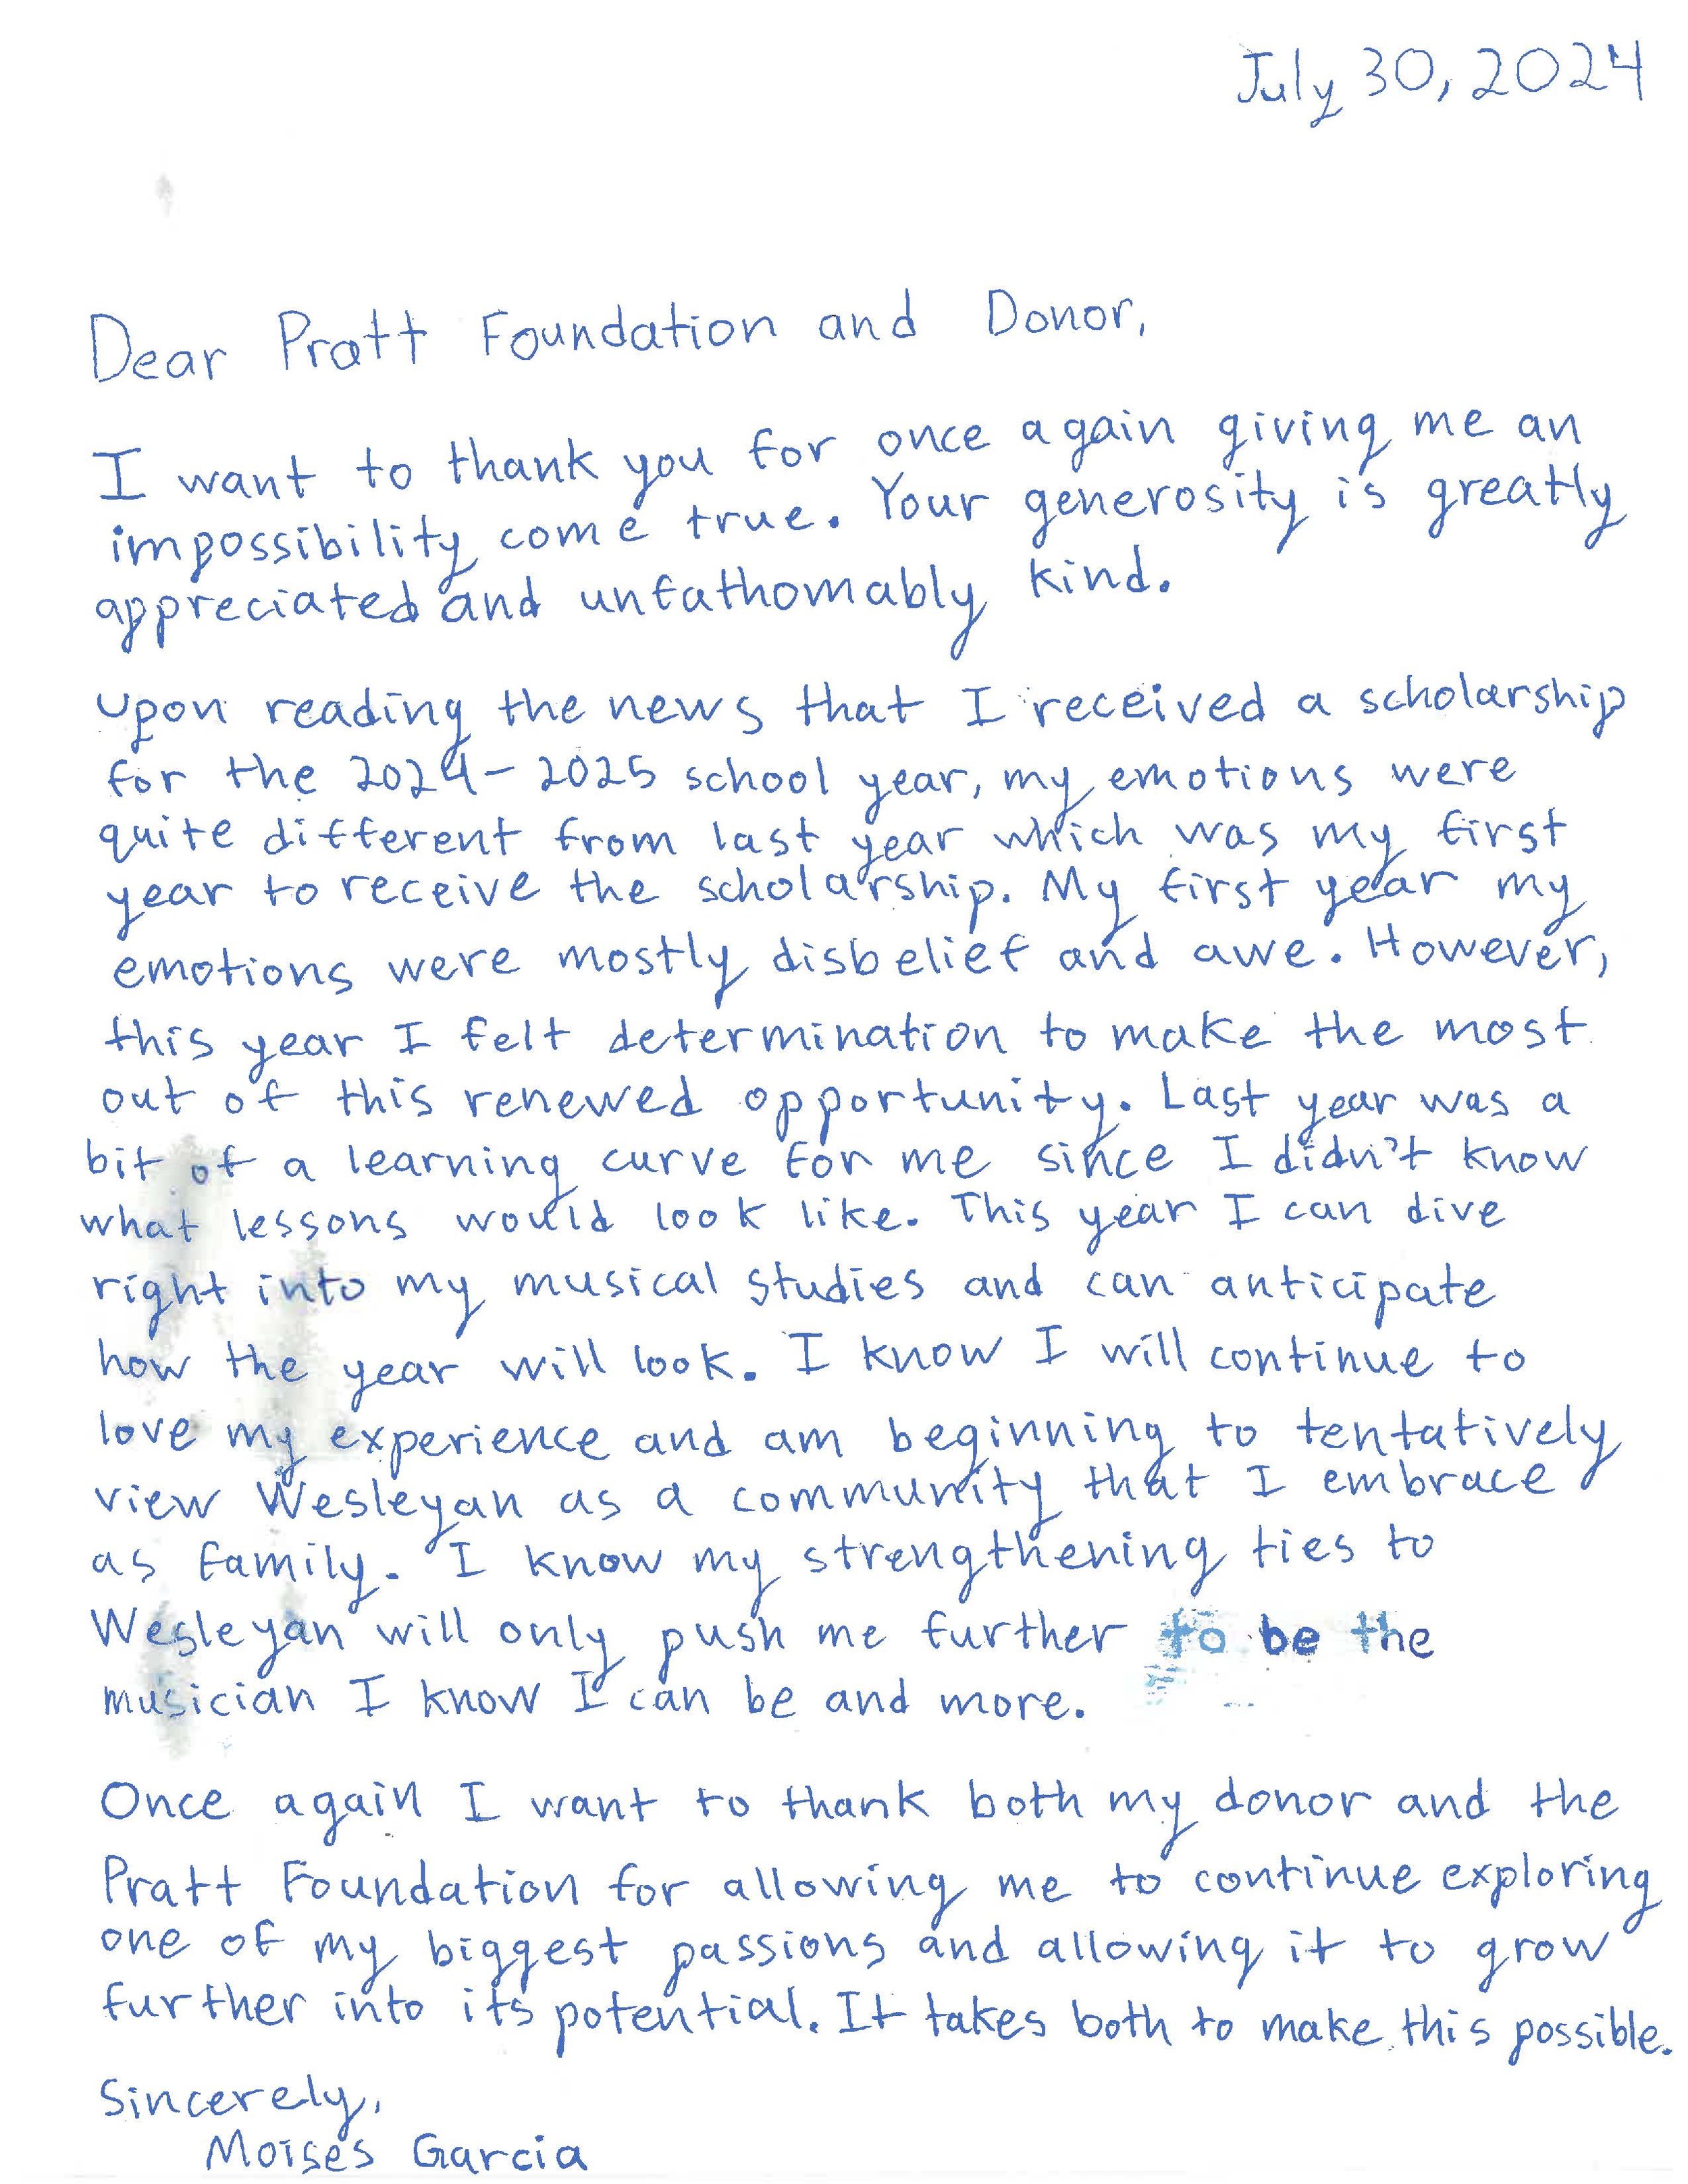 July 30, 2024
Dear Pratt Foundation and Donor,
I want to thank you for once again giving me an
impossibility come true. Your generosity is greatly
appreciated and unfathomably kind.
Upon reading the news that I received a scholarship
for the 2024-2025 school year, my emotions were
quite different from last year which was my first
year to receive the scholarship. My first year my
emotions were mostly disbelief and awe. However,
this year I felt determination to make the most
out of this renewed opportunity. Last year was a
bit of a learning curve for me since I didn't know
what lessons would look like. This year I can dive
right into my musical studies and can anticipate
how the year will look. I know I will continue to
love my experience and am beginning to tentatively
view Wesleyan as a community that I embrace
as family. I know my strengthening ties to
Wesleyan will only push me further to be the
musician I know I can be and more.
Once again I want to thank both my donor and the
Pratt Foundation for allowing me to continue exploring
one of my biggest passions and allowing it to grow
further into its potential. It takes both to make this possible.
Sincerely,
Moisés Garcia